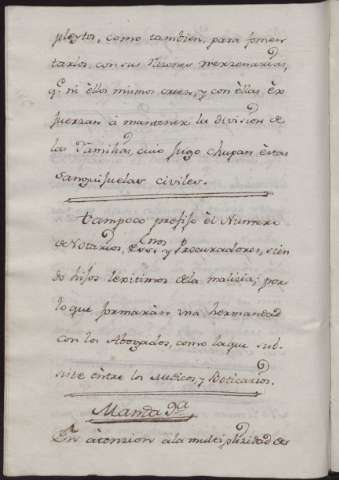 pleytos, como tambien, para fomen
tarlos, con sus Razones mercenarias,
q.e ni èllos mismos creen, y con èllas èx
fuerzan à mantener la division de
las Familias, cuio jugo chupan èstas
Sanguijuelas civiles.
tampoco prefijo èl Numero
de Notarios, Ess.nos y Procuradores, sien
do hijos lexitimos de la malicia; por
lo que formaràn una hermandad
con los Abogados, como la que sub-
siste èntre los Medicos, y Boticarios.
Manda 9.a
En àtenzion à la multiplizidad de